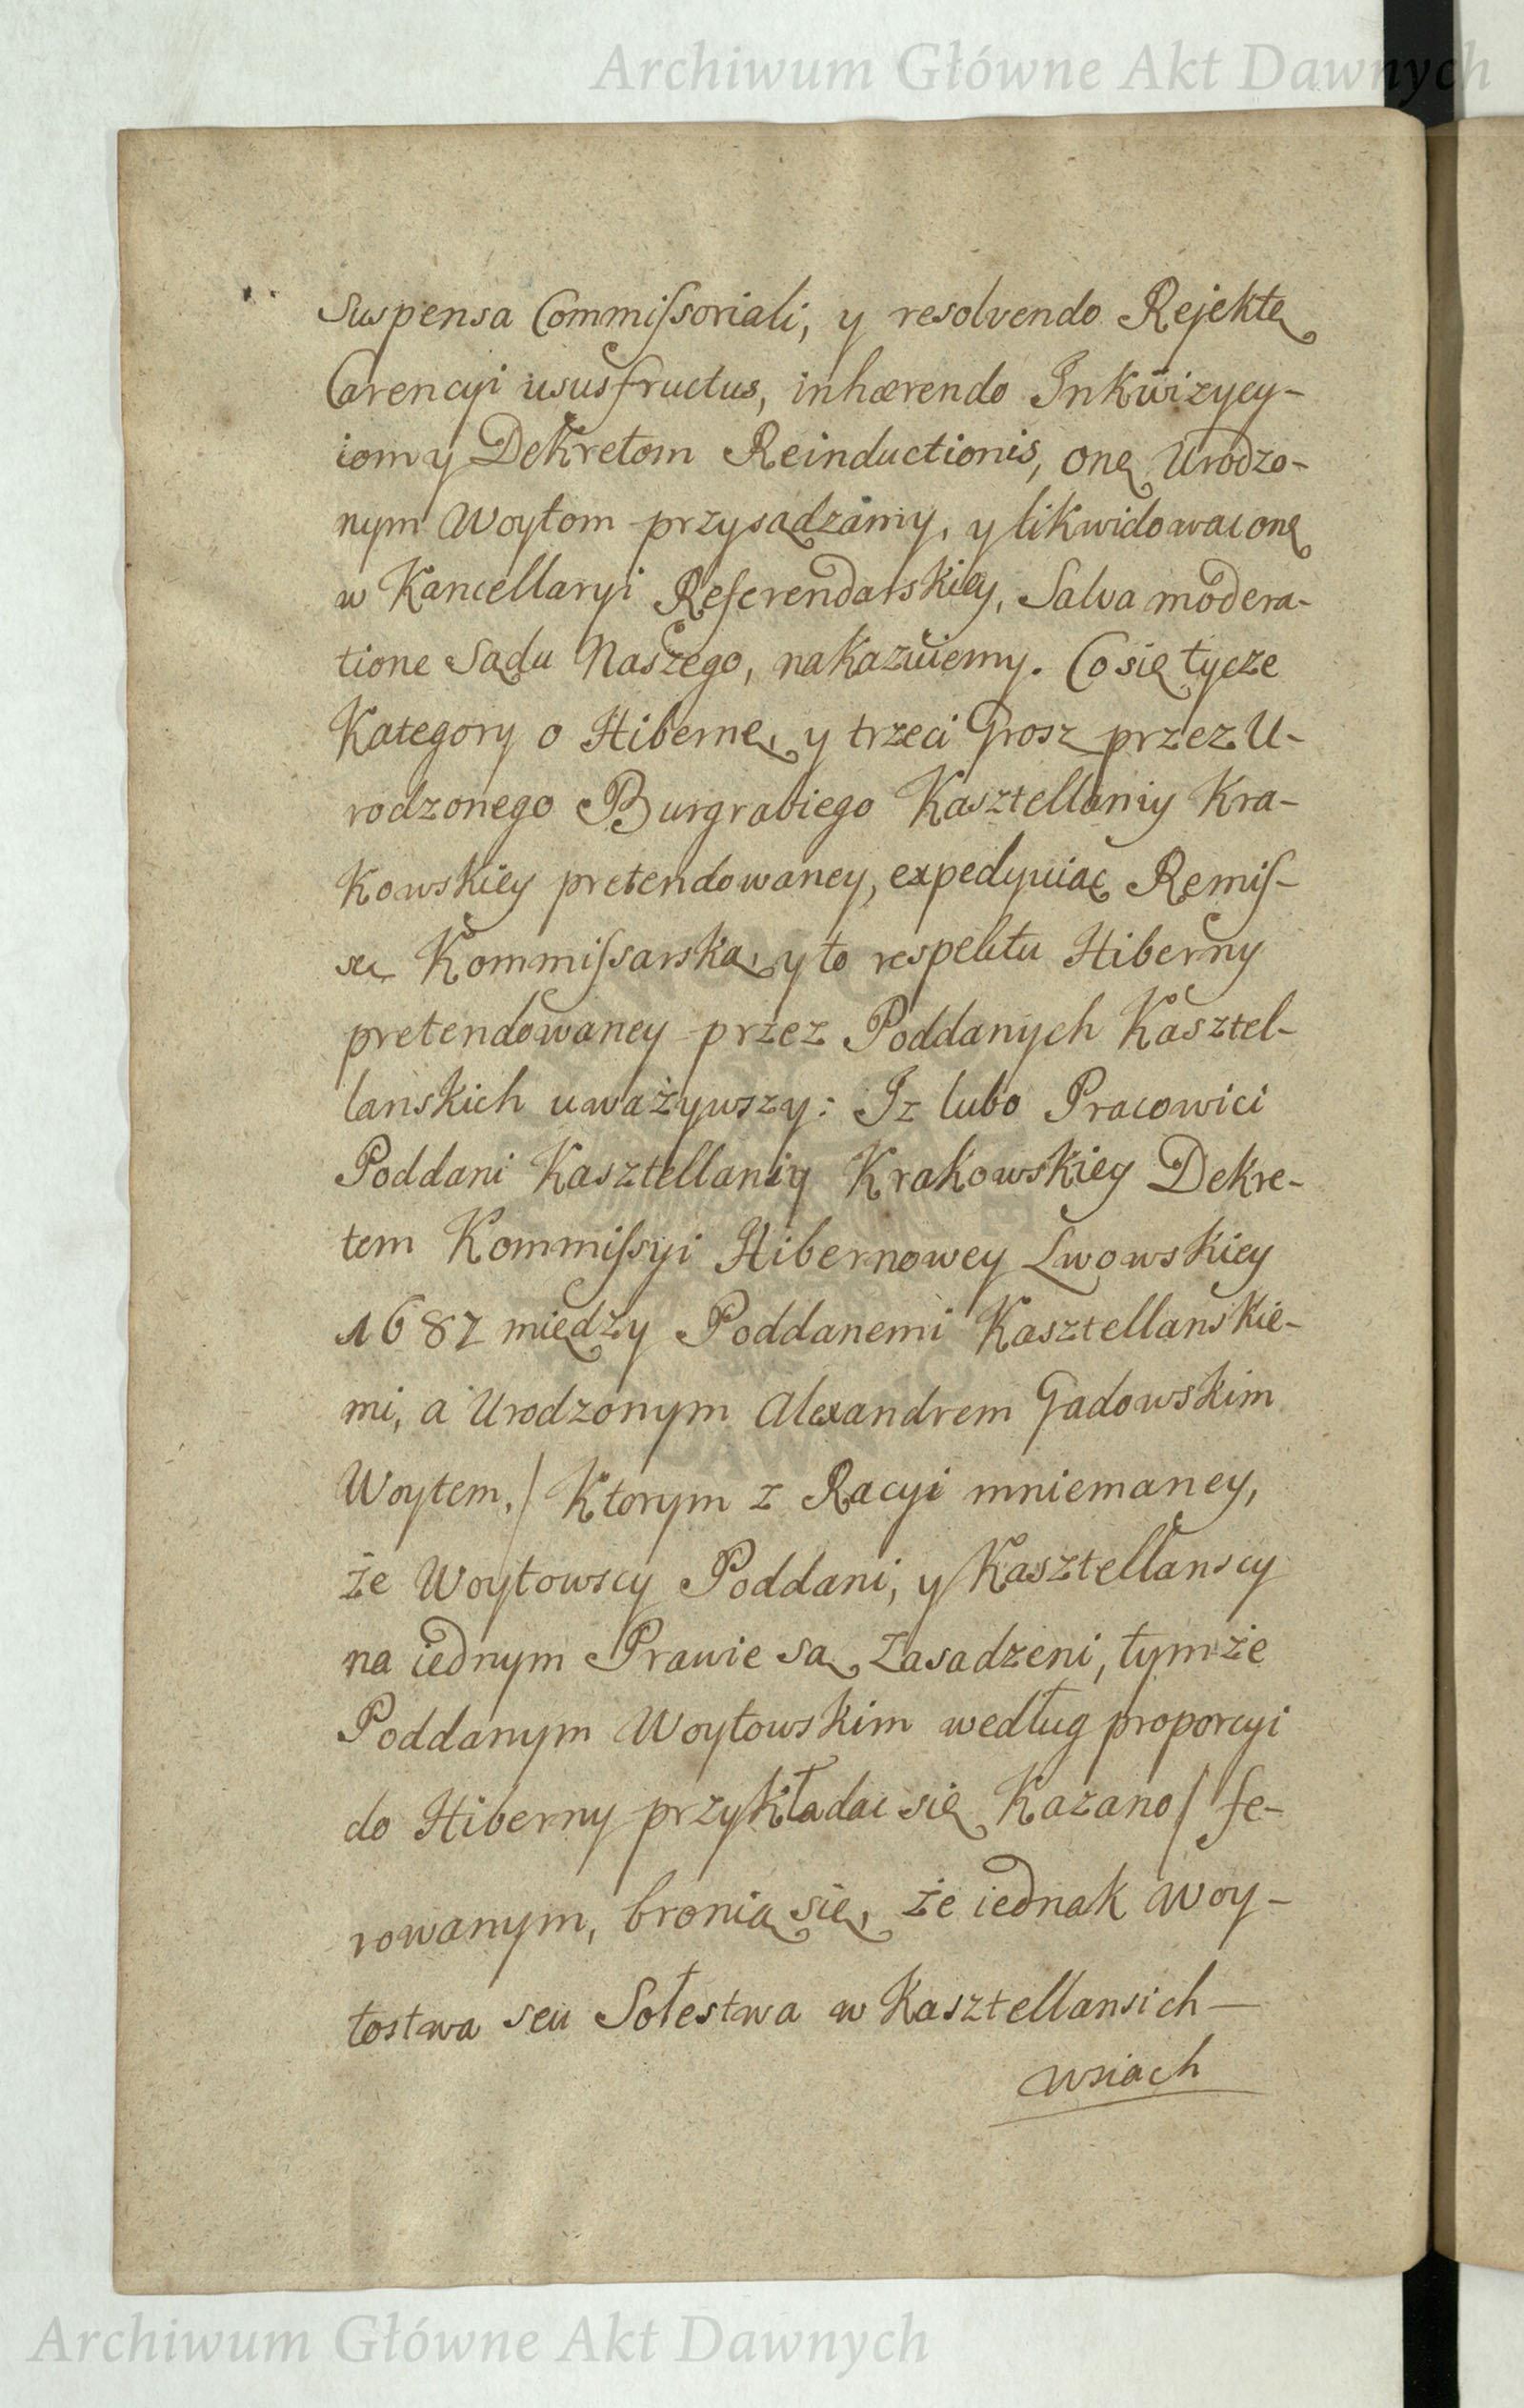 Archiwum Główne Akt Dawnych
Suspensa Commiſsoriali, y resolvendo Rejektę
Carencyi ususfructus, inhærendo Inkwizycy-
iom y Dekretom Reinductionis, onę Urodzo-
nym Woytom przysądzamy, y likwidowac onę
w Kancellaryi Referendarskiey, Salva modera-
tione Sądu Naszego, nakazuiemy. Co się tycze
Kategory o Hibernę, y trzeci Grosz przez U-
rodzonego Burgrabiego Kasztellaniy Kra-
kowskiey pretendowaney, expedyuiąc Remiſ-
sę Kommiſsarską, y to respektu Hiberny
pretendowaney przez Poddanych Kasztel-
lanskich uważywszy: Iz lubo Pracowici
Poddani Kasztellaniy Krakowskiey Dekre-
tem Kommiſsyi Hibernowey Lwowskiey
1687 między Poddanemi Kasztellanskie-
mi, a Urodzonym Alexandrem Gadowskim
Woytem, / Ktorym z Racyi mniemaney,
że Woytowscy Poddani, y Kasztellanscy
na iednym Prawie są Zasadzeni, tymże
Poddanym Woytowskim według proporcyi
do Hiberny przykładac się Kazano / fe-
rowanym, bronią się, że iednak Woy-
tostwa seu Sołestwa w Kasztellansich
wsiach
Archiwum Główne Akt Dawnych